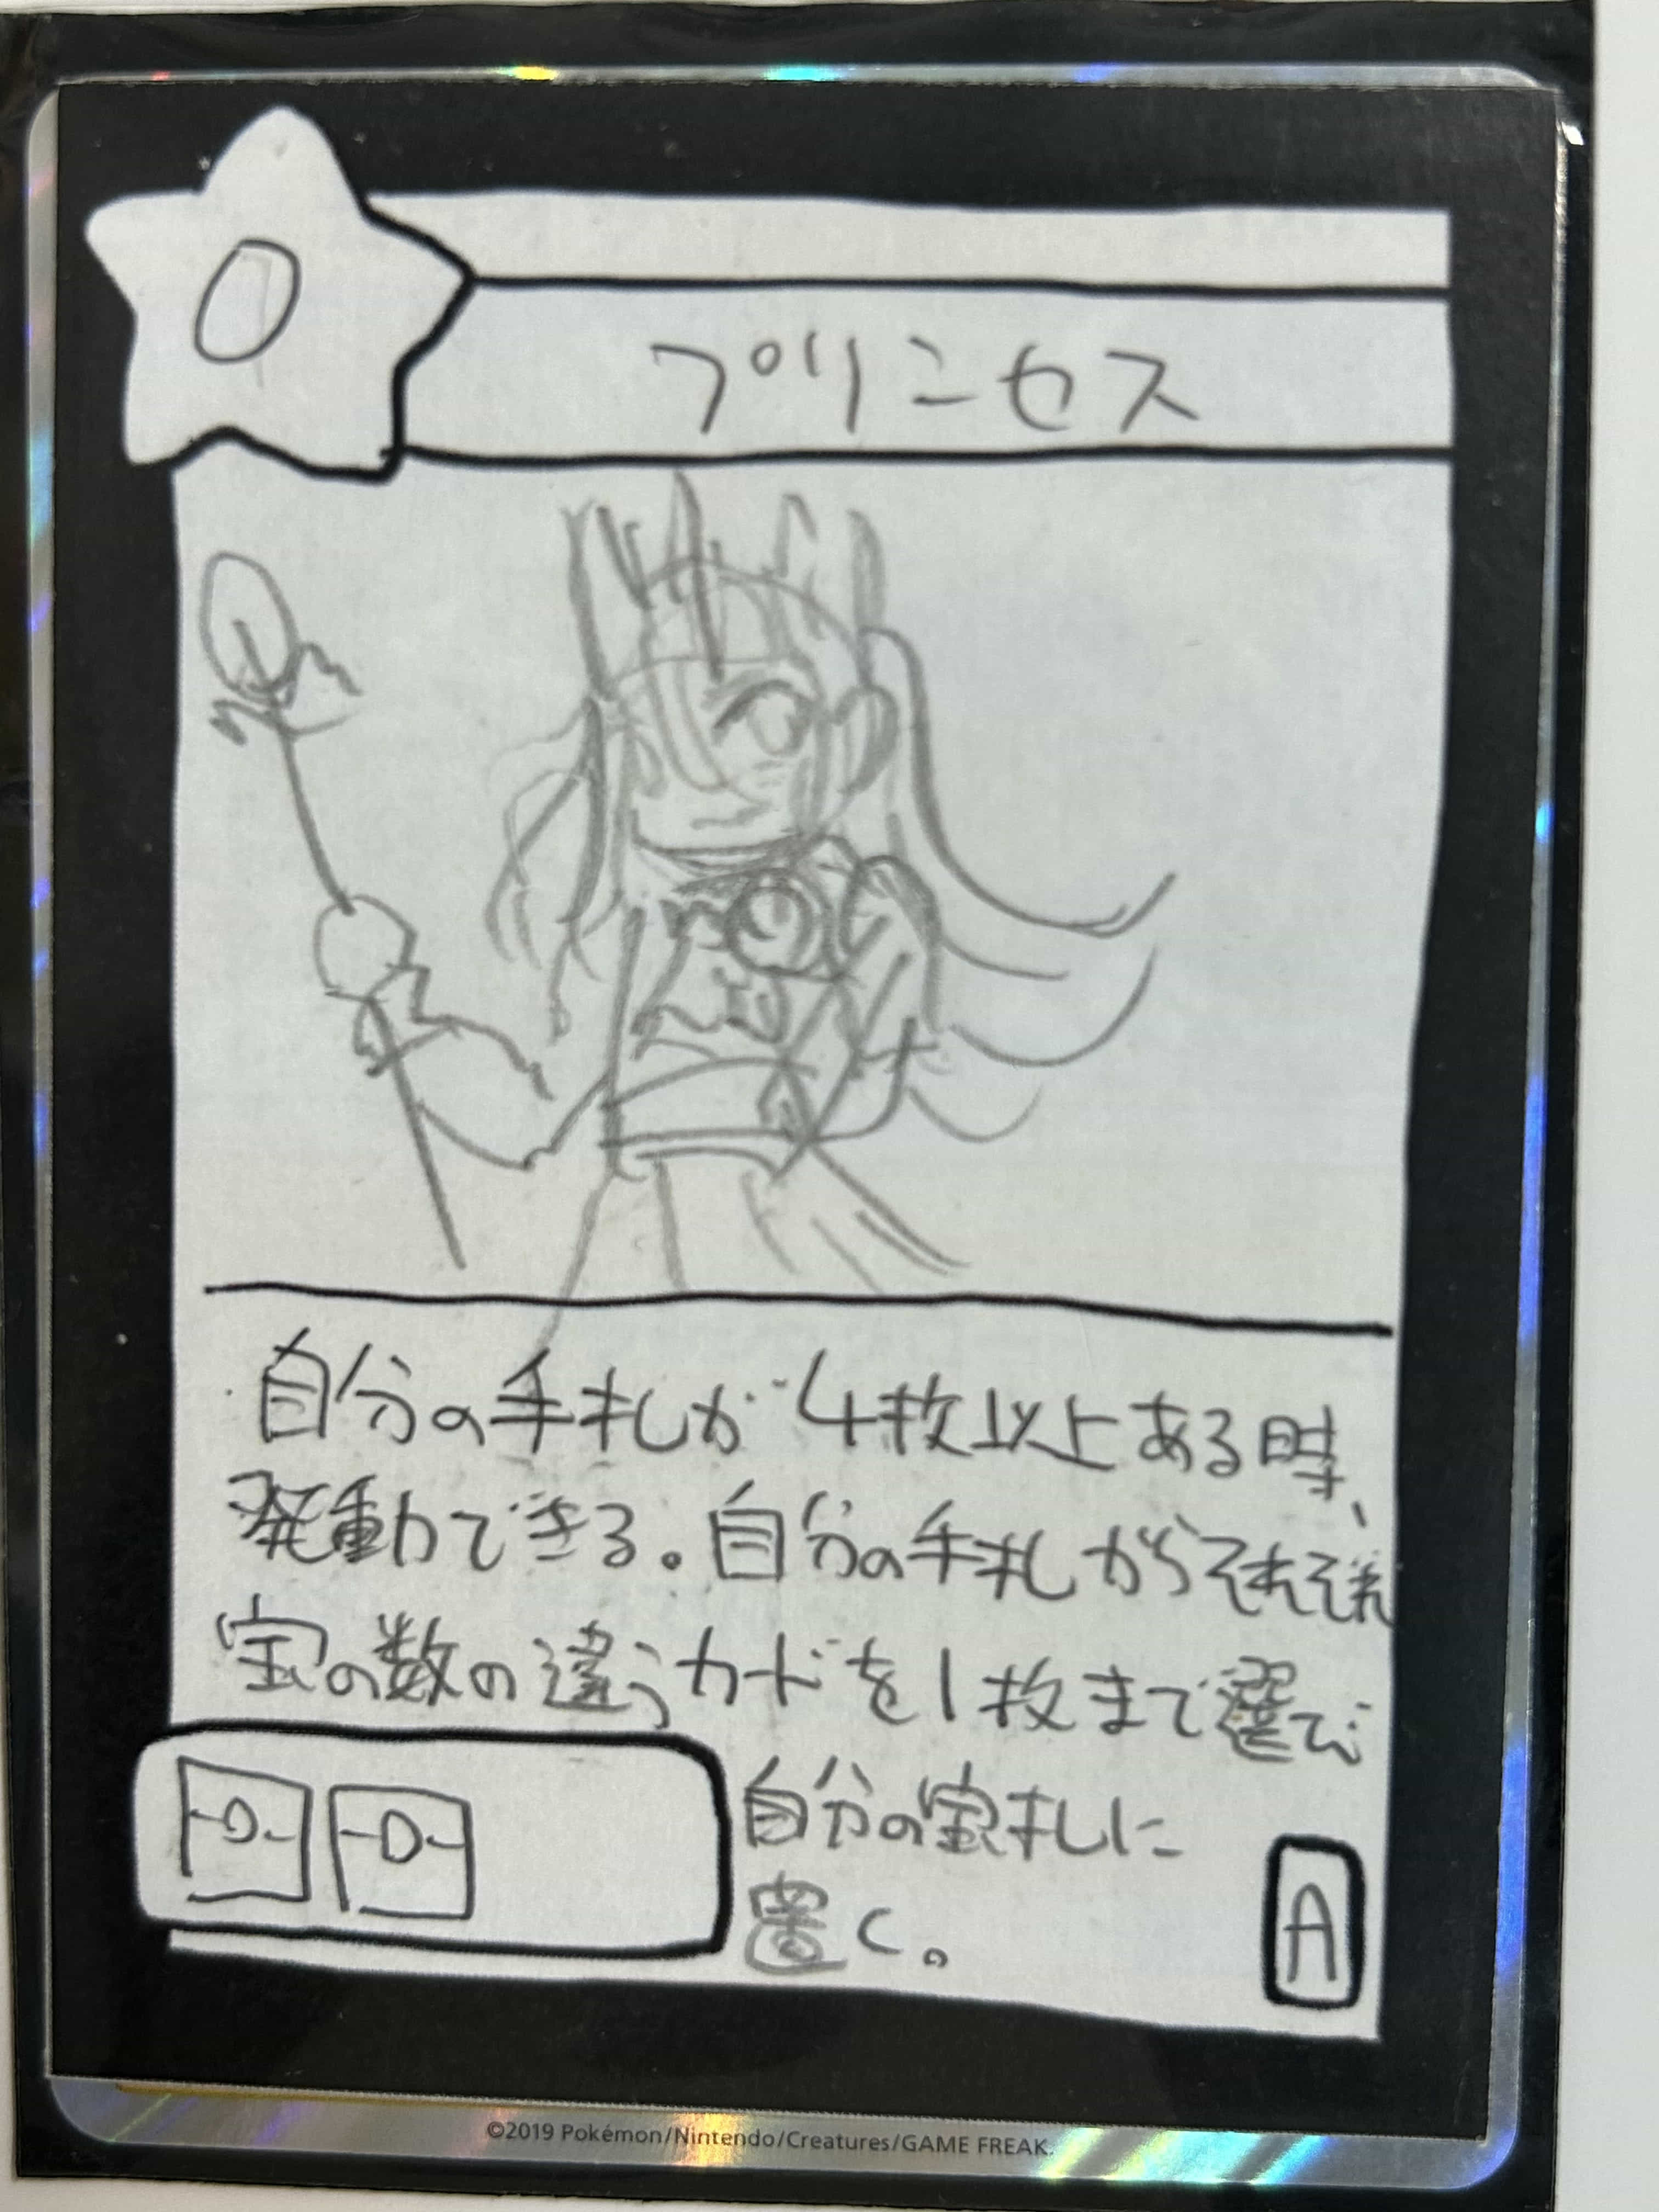 0
プリンセス
自分の手札が4枚以上ある時、
発動できる。自分の手札からそれぞれ
宝の数の違うカードを1枚まで選び
自分の宝札に
置く。
A
©2019 Pokémon/Nintendo/Creatures/GAME FREAK.